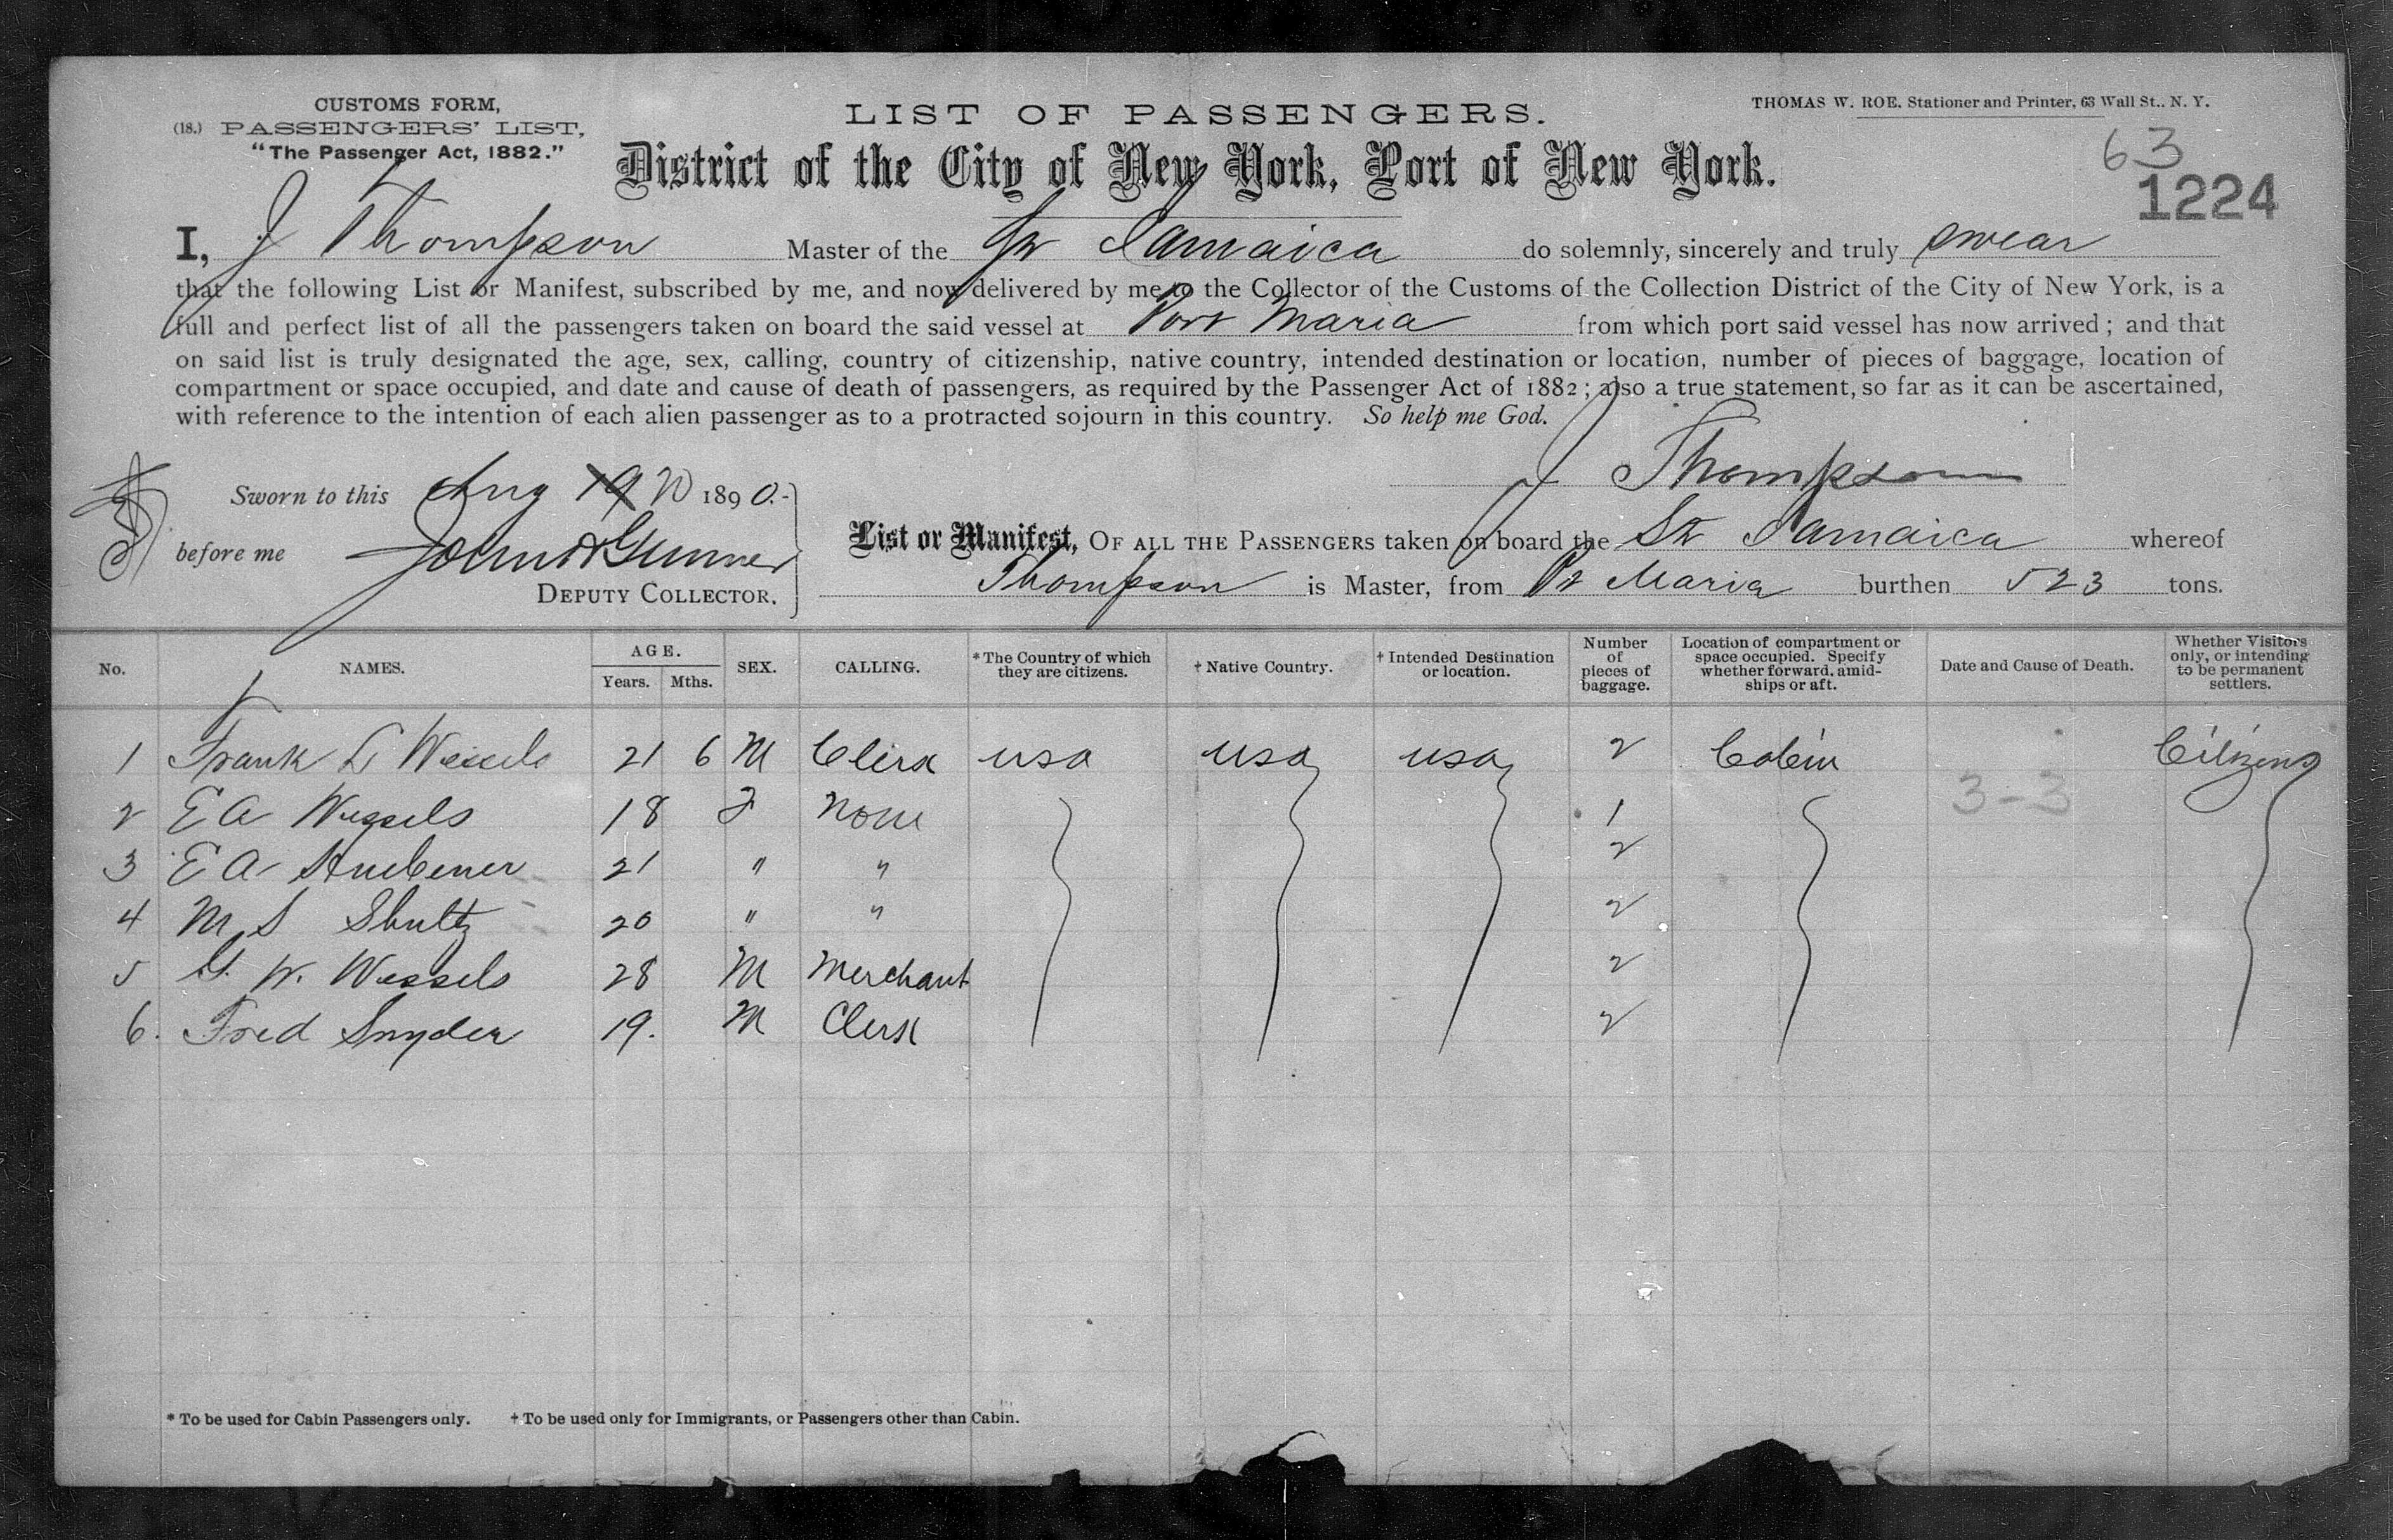 CUSTOMS FORM,
(18.) PASSENGERS' LIST,
"The Passenger Act, 1882."
LIST OF PASSENGERS.
THOMAS W. ROE. Stationer and Printer, 63 Wall St.. N. Y.
District of the City of New York, Port of New York.
63
1224
I, J Thompson Master of the Str Jamaica do solemnly, sincerely and truly swear
that the following List or Manifest, subscribed by me, and now delivered by me to the Collector of the Customs of the Collection District of the City of New York, is a
full and perfect list of all the passengers taken on board the said vessel at Port Maria from which port said vessel has now arrived; and that
on said list is truly designated the age, sex, calling, country of citizenship, native country, intended destination or location, number of pieces of baggage, location of
compartment or space occupied, and date and cause of death of passengers, as required by the Passenger Act of 1882; also a true statement, so far as it can be ascertained,
with reference to the intention of each alien passenger as to a protracted sojourn in this country. So help me God.
J Thompson
Sworn to this Aug 19 20 1890.
before me John
DEPUTY COLLECTOR.
List or Manifest, OF ALL THE PASSENGERS taken on board the Str Jamaica whereof
Thompson is Master, from Pt Maria burthen 523 tons.
No. NAMES. AGE. Years. Mths. SEX. CALLING. * The Country of which they are citizens. † Native Country. † Intended Destination or location. Number of pieces of baggage. Location of compartment or space occupied. Specify whether forward, amidships or aft. Date and Cause of Death. Whether Visitors only, or intending to be permanent settlers.
1 Frank L Wessels 21 6 M Clerk USA USA USA 2 Cabin Citizens
3-3
2 E A Wessels 18 F None 1
3 E A 21 " " 2
4 M S Shultz 20 " " 2
5 G. W. Wessels 28 M Merchant 2
6. Fred Snyder 19. M Clerk 2
* To be used for Cabin Passengers only. † To be used only for Immigrants, or Passengers other than Cabin.